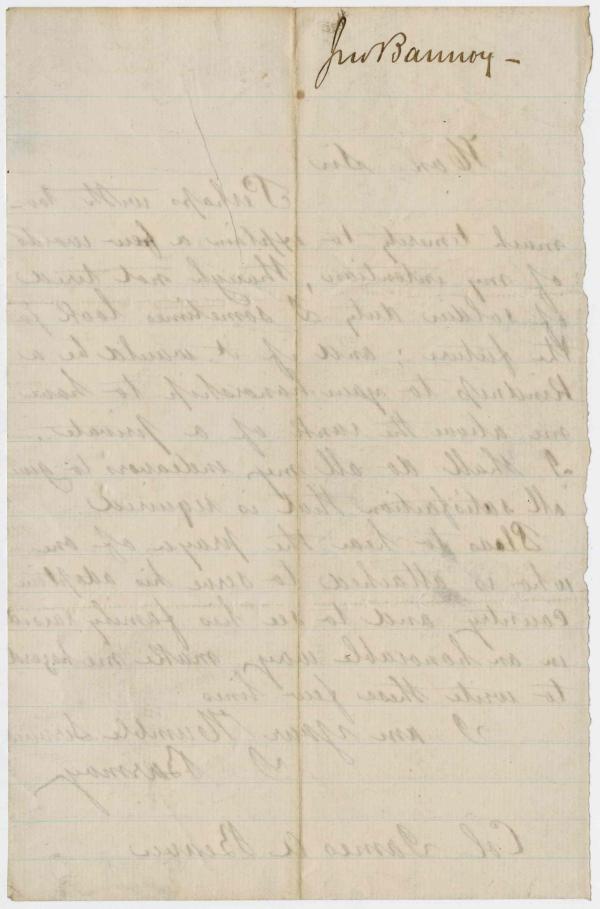 Jno Bannoy -
Hon. Sir
Perhaps with too
much timerity to explain a few words
of my intention, though not tired
of soldier duty I sometimes look to
the future; and if it would be a
kindness to your honorship to have
me above the rank of a private,
I shall do all my endeavors to give
all satisfaction that is required.
Pleas to hear the prayer of one
who is attached to serve his adoptive
country and to see his family raised
in an honorable way, make me
to write these few lines
I am your Humble Servant
J Bannoy
Col James A Beaver